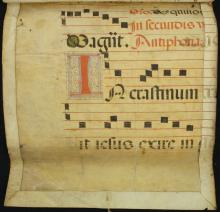 In secundis v
Magnt̄. Antiphona
IN crastinum
it iesus exire in